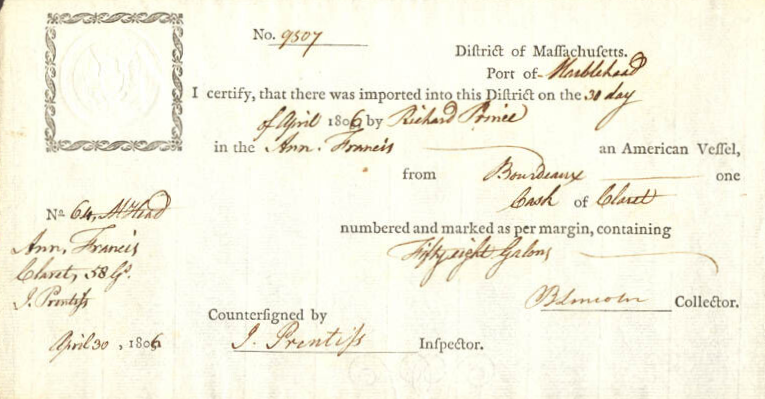 No. 9507
District of Maſſachuſetts.
Port of Marblehead
I certify, that there was imported into this District on the 30 day
of April 1806 by Richard Prince
in the Ann. Francis an American Veſſel,
from Bourdeaux one
Cask of Claret
numbered and marked as per margin, containing
Fifty eight Galons
No. 64, MHead
Ann, Francis
Claret, 58 Gs.
J. Prentiſs
April 30, 1806
BLincoln Collector.
Counterſigned by
J. Prentiſs Inſpector.